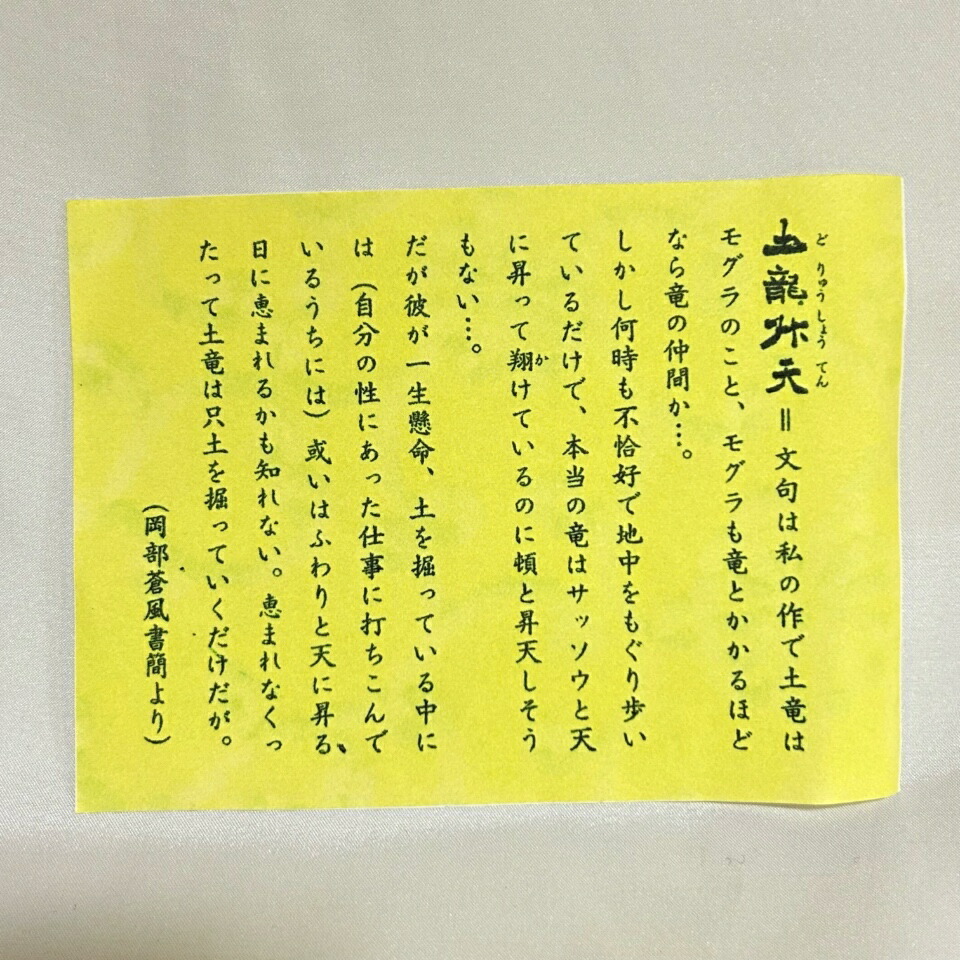 土龍昇天=文句は私の作で土竜は
どりゅうしょうてん
モグラのこと、モグラも竜とかかるほど
なら竜の仲間か…。
しかし何時も不恰好で地中をもぐり歩い
ているだけで、本当の竜はサッソウと天
に昇って翔けているのに頓と昇天しそう
か
もない…。
だが彼が一生懸命、土を掘っている中に
は(自分の性にあった仕事に打ちこんで
いるうちには)或いはふわりと天に昇る、
日に恵まれるかも知れない。恵まれなくっ
たって土竜は只土を掘っていくだけだが。
(岡部蒼風書簡より)